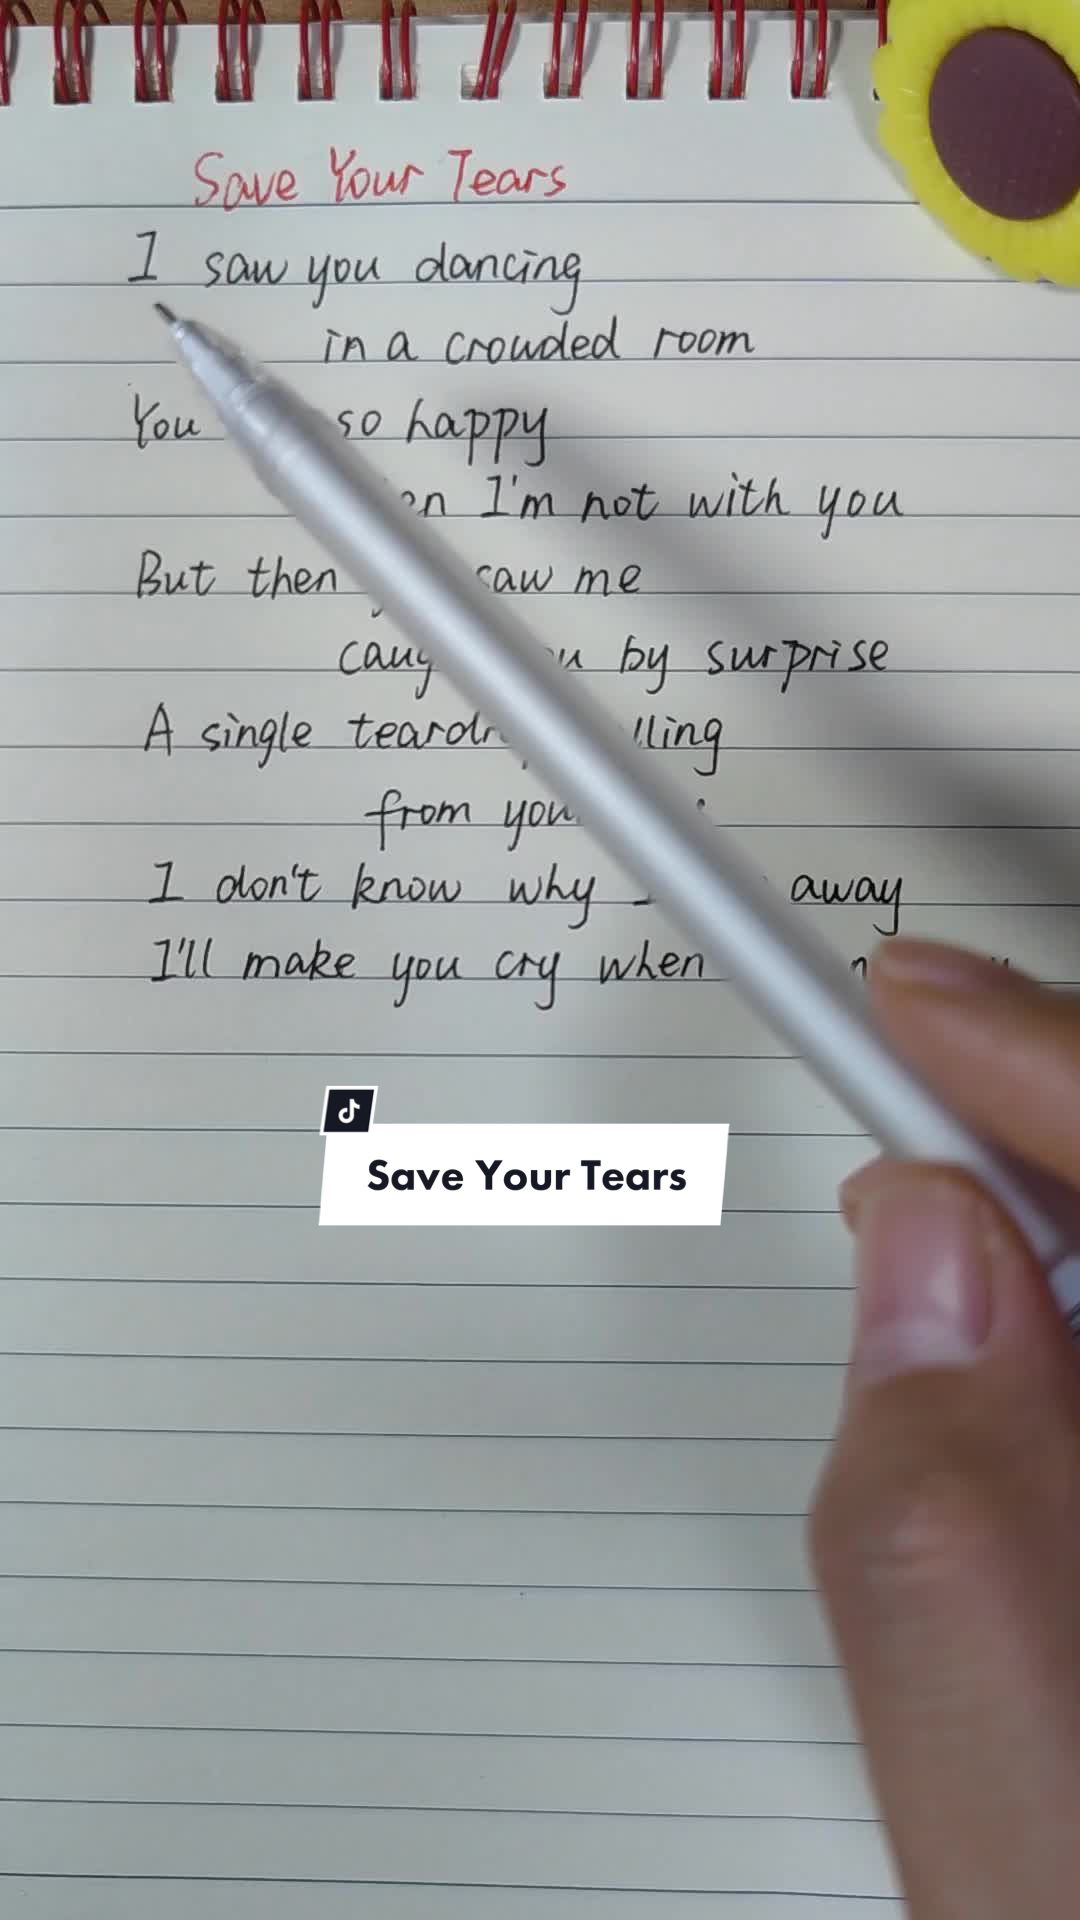 Save Your Tears
I saw you dancing
in a crowded room
You so happy
I'm not with you
But then saw me
by surprise
A single
from
I don't know why away
I'll make you cry when
Save Your Tears